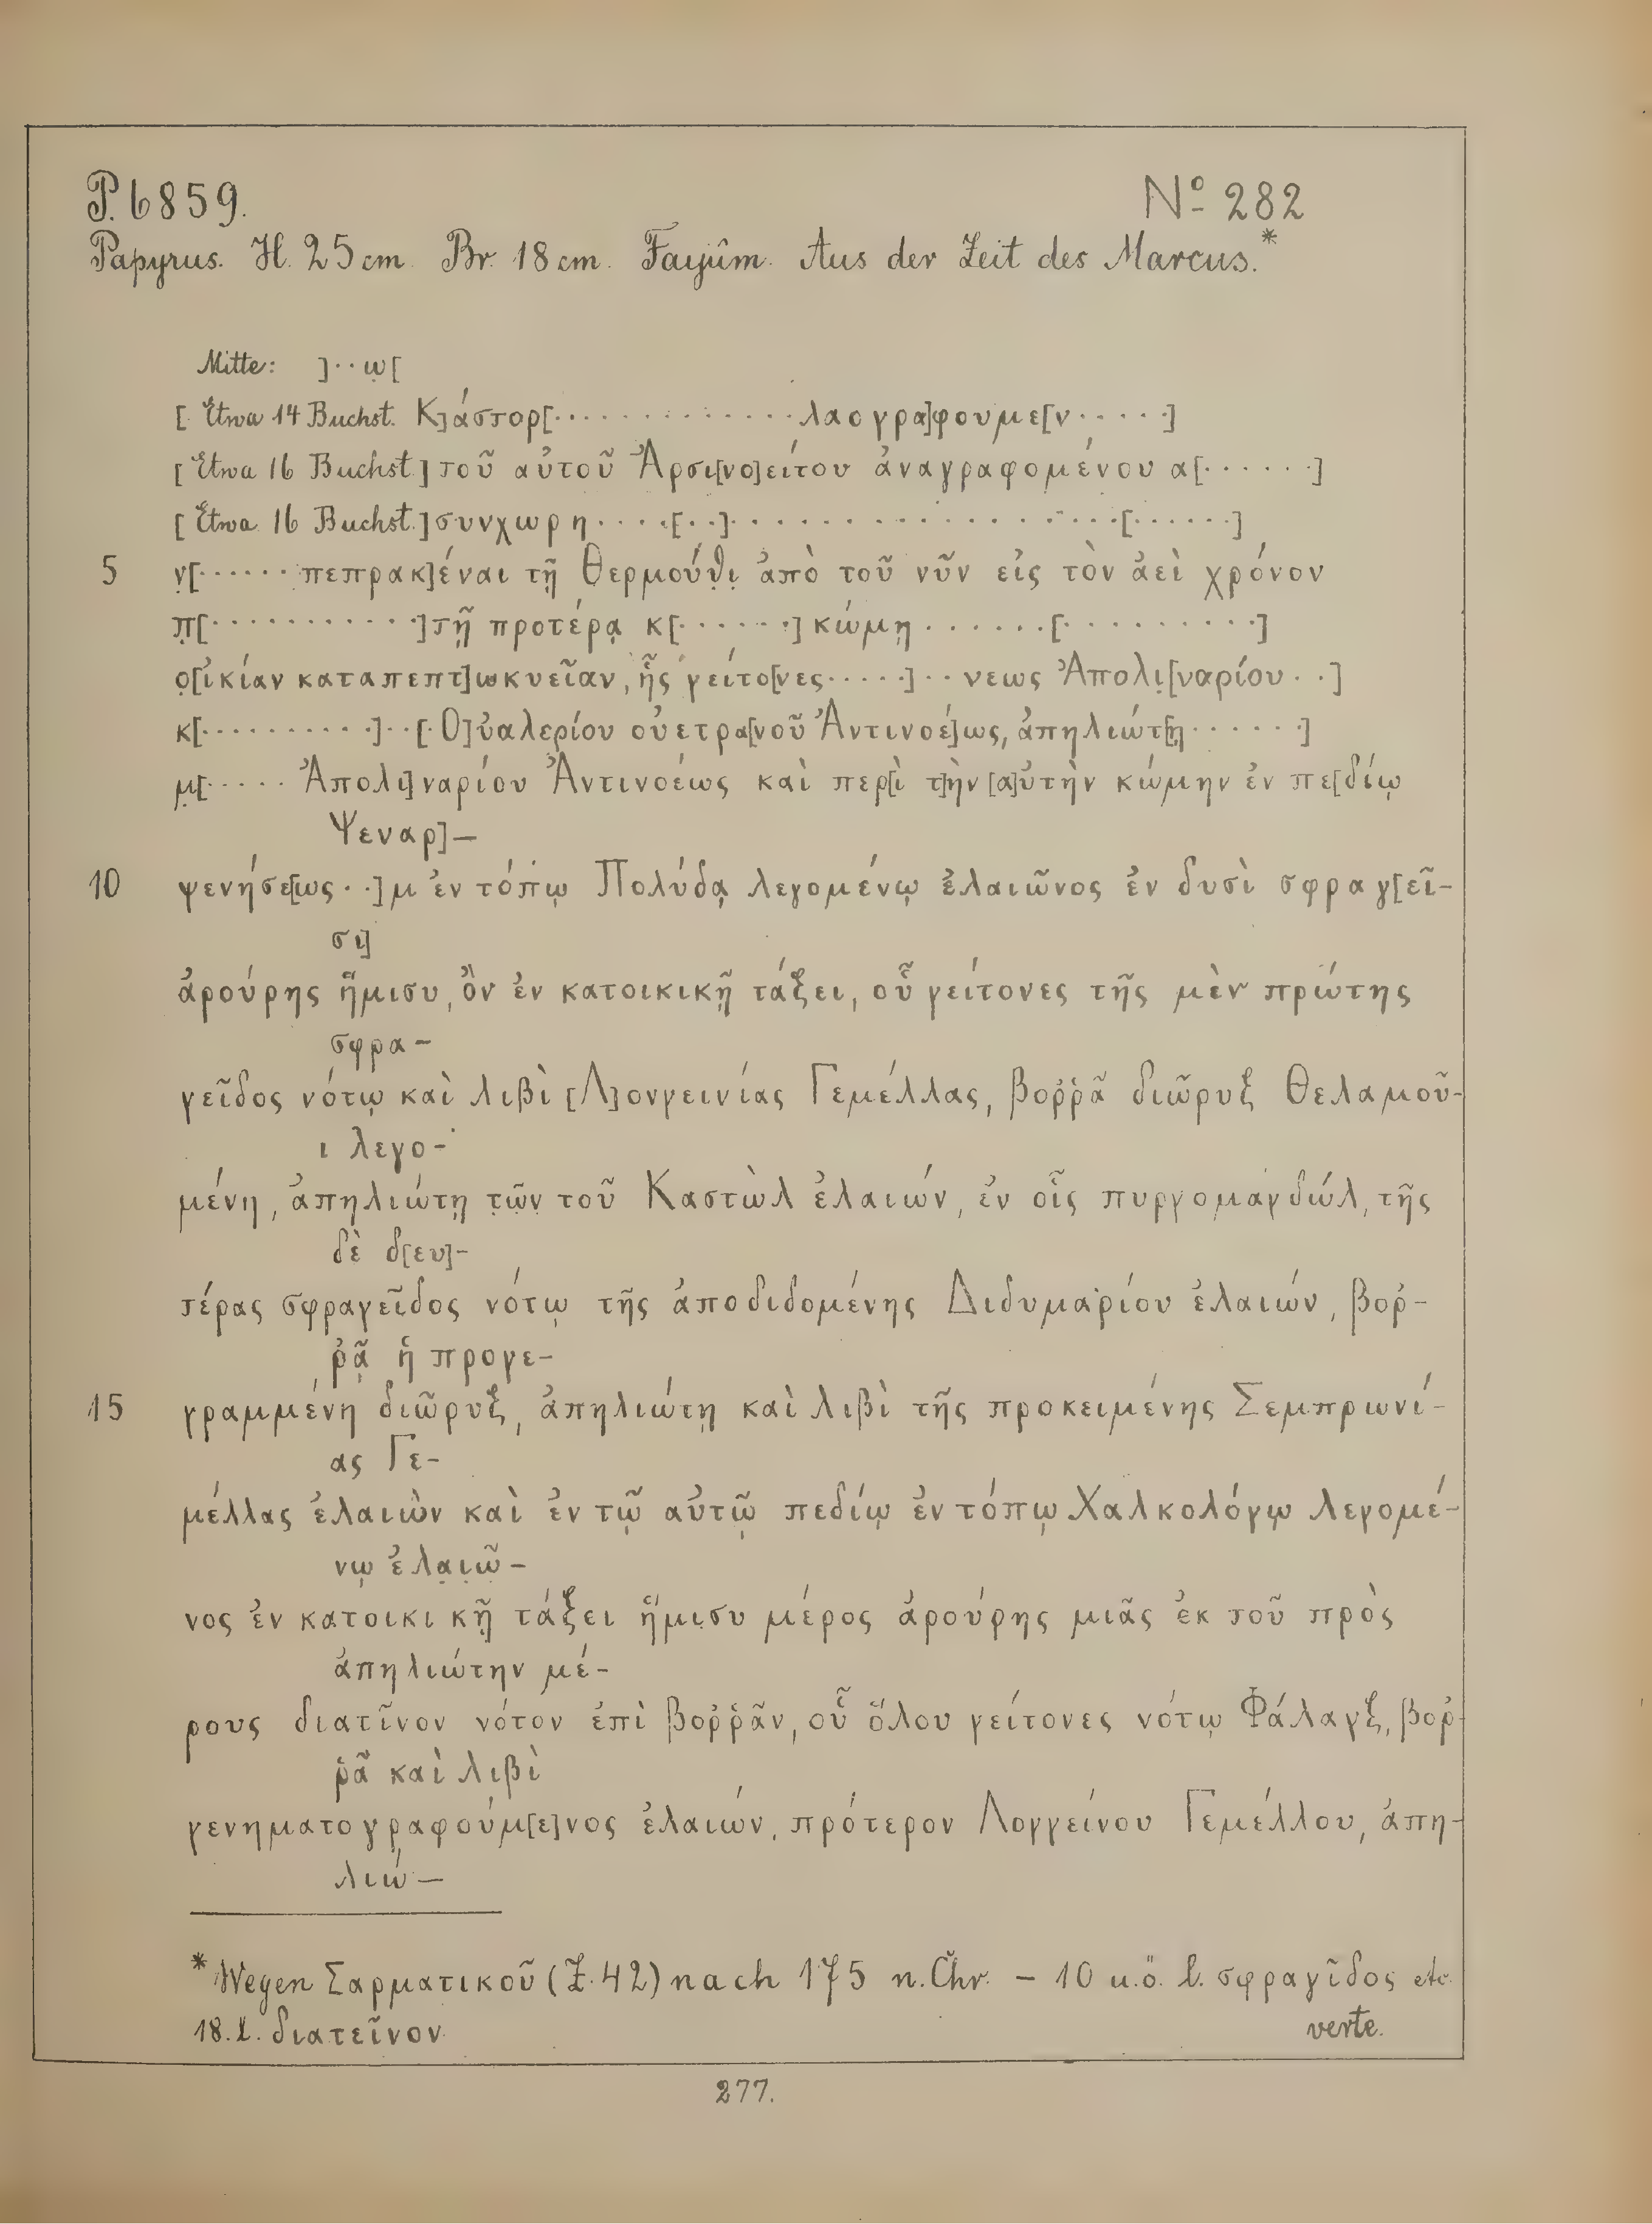 P. 6859.
Nº 282
Papyrus. H. 25 cm. Br. 18 cm. Fayûm. Aus der Zeit des Marcus.*
Mitte: ]··ω̣[
[ Etwa 14 Buchst. Κ]άστορ[··············λαογρα]φουμε[ν·····]
[ Etwa 16 Buchst.] τοῦ αὐτοῦ Ἀρσι[νο]είτου ἀναγραφομένου α[······]
[ Etwa 16 Buchst.] συνχωρη····[··]················[······]
5 ν̣[······πεπρακ]έναι τῇ Θερμούθ̣ι̣ ἀπὸ τοῦ νῦν εἰς τὸν ἀεὶ χρόνον
π̣[···········]τῇ προτέρᾳ κ[······] κώμῃ······[·········]
ο̣[ἰκίαν καταπεπτ]ωκυεῖαν, ἧς γείτο[νες·····]··νεως Ἀπολι̣[ναρίου··]
κ[··········]··[·Ο]ὐαλερίου οὐετρα[νοῦ Ἀντινοέ]ως, ἀπηλιώτ[ῃ······]
μ̣[·····Ἀπολι]ναρίου Ἀντινοέως καὶ περ[ὶ τ]ὴν [α]ὐτὴν κώμην ἐν πε[δίῳ
Ψεναρ]—
10 ψενήσε[ως··]μ ἐν τόπῳ Πολύδᾳ λεγομένῳ ἐλαιῶνος ἐν δυσὶ σφραγ[εῖ-
σι]
ἀρούρης ἥμισυ, ὃν ἐν κατοικικῇ τάξει, οὗ γείτονες τῆς μὲν πρώτης
σφρα-
γεῖδος νότῳ καὶ λιβὶ [Λ]ονγεινίας Γεμέλλας, βοῤῥᾶ διῶρυξ Θελαμοῦ-
ι λεγο-
μένη, ἀπηλιώτῃ τ̣ῶ̣ν̣ τοῦ Καστὼλ ἐλαιών, ἐν οἷς πυργομαγδώλ, τῆς
δὲ δ[ευ]-
τέρας σφραγεῖδος νότῳ τῆς ἀποδιδομένης Διδυμαρίου ἐλαιών, βοῤ-
ῥᾷ ἡ προγε-
15 γραμμένη διῶρυξ, ἀπηλιώτῃ καὶ λιβὶ τῆς προκειμένης Σεμπρωνί-
ας Γε-
μέλλας ἐλαιὼν καὶ ἐν τῷ αὐτῷ πεδίῳ ἐν τόπῳ Χαλκολόγῳ λεγομέ-
νῳ ἐλα̣ι̣ῶ̣-
νος ἐν κατοικικῇ τάξει ἥμισυ μέρος ἀρούρης μιᾶς ἐκ τοῦ πρὸς
ἀπηλιώτην μέ-
ρους διατῖνον νότον ἐπὶ βοῤῥᾶν, οὗ ὅλου γείτονες νότῳ Φάλαγξ, βοῤ-
ῥᾶ καὶ λιβὶ
γενηματογραφούμ[ε]νος ἐλαιών, πρότερον Λογγείνου Γεμέλλου, ἀπη-
λιώ—
* Wegen Σαρματικοῦ (Z. 42) nach 175 n. Chr. — 10 u. ö. l. σφραγῖδος etc.
18. l. διατεῖνον
verte.
277.